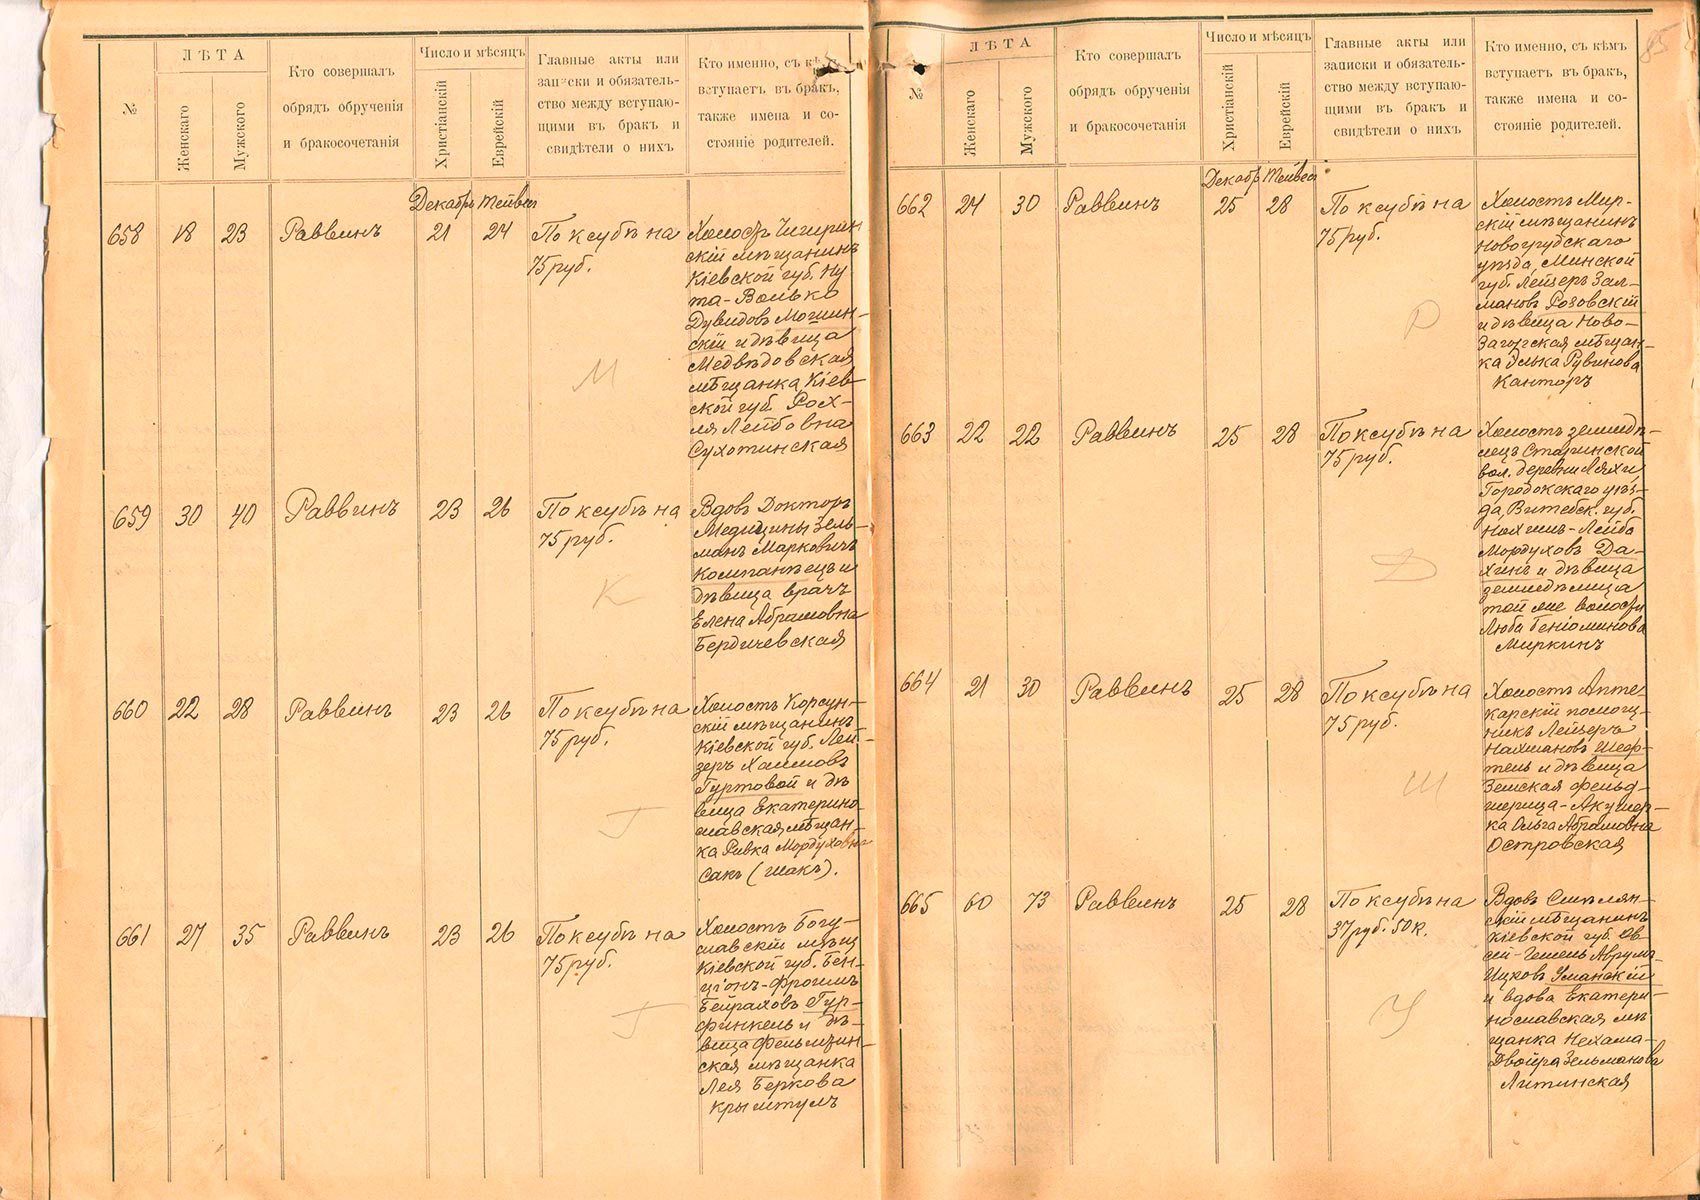 №
ЛѢТА
Женскаго
Мужского
Кто совершалъ
обрядъ обрученія
и бракосочетанія
Число и мѣсяцъ
Христіанскій
Еврейскій
Главные акты или
записки и обязатель-
ство между вступаю-
щими въ бракъ и
свидѣтели о нихъ
Кто именно, съ кѣмъ
вступаетъ въ бракъ,
также имена и со-
стояніе родителей.
Декабрь Тейвесъ
658 18 23 Раввинъ 21 24 По ксубѣ на
75 руб.
Холостъ Чигирин
скій мѣщанинъ
Кіевской губ. Ну
та-Волько
Дувидовъ Мошин-
скій и дѣвица
Медвѣдовская
мѣщанка Кіев-
ской губ. Рох-
ля Лейбовна
Сухотинская
М
659 30 40 Раввинъ 23 26 По ксубѣ на
75 руб.
Вдовъ Докторъ
Медицины Зель-
манъ Марковичъ
Компанѣецъ и
дѣвица врачъ
Елена Абрамовна
Бердичевская
К
660 22 28 Раввинъ 23 26 По ксубѣ на
75 руб.
Холостъ Корсун-
скій мѣщанинъ
Кіевской губ. Лей-
зеръ Хаимовъ
Гуртовой и дѣ
вица Екатерино-
славская мѣщан-
ка Ривка Мордуховна
Сакъ (Шакъ).
Г
661 27 35 Раввинъ 23 26 По ксубѣ на
75 руб.
Холостъ Богу-
славскій мѣщ
Кіевской губ. Бен-
ціонъ-Фроимъ
Бейраховъ Гур-
финкель и дѣ-
вица Фельштин-
ская мѣщанка
Лея Беркова
Крымтулъ
Г
85
№
ЛѢТА
Женскаго
Мужского
Кто совершалъ
обрядъ обрученія
и бракосочетанія
Число и мѣсяцъ
Христіанскій
Еврейскій
Главные акты или
записки и обязатель-
ство между вступаю-
щими въ бракъ и
свидѣтели о нихъ
Кто именно, съ кѣмъ
вступаетъ въ бракъ,
также имена и со-
стояніе родителей.
Декабрь Тейвесъ
662 24 30 Раввинъ 25 28 По ксубѣ на
75 руб.
Холостъ Мир-
скій мѣщанинъ
Новогрудскаго
уѣзда, Минской
губ. Лейзеръ Зал-
мановъ Розовскій
и дѣвица Ново-
Загорская мѣщан-
ка Элька Рувинова
Канторъ
Р
663 22 22 Раввинъ 25 28 По ксубѣ на
75 руб.
Холостъ землед-
лецъ Стайинской
вол. деревни Ляхи
Городокскаго уѣз-
да, Витебск. губ.
Нохимъ-Лейба
Мордуховъ Да-
хинъ и дѣвица
земледѣлица
той же волости
Люба Геніоминова
Миркинъ
Д
664 21 30 Раввинъ 25 28 По ксубѣ на
75 руб.
Холостъ Апте-
карскій помощ-
никъ Лейзеръ
Нахмановъ Шеф-
тель и дѣвица
Земская фельд-
шерица-Акушер-
ка Ольга Абрамовна
Островская
Ш
665 60 73 Раввинъ 25 28 По ксубѣ на
37 руб. 50 к.
Вдовъ Смѣлян-
скій мѣщанинъ
Кіевской губ. Ов-
сей-Гешель Аврумъ-
Ицковъ Уманскій
и вдова Екатери-
нославская мѣ
щанка Нехама-
Двойра Зельманова
Литинская
У